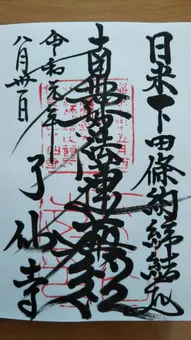 日米下田條約締結地
南無妙法蓮華経
了仙寺
令和元年
八月卅一日